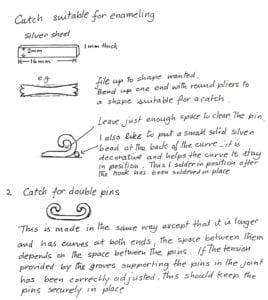 Catch suitable for enameling
Silver sheet
2mm
1mm thick
16mm
e.g
file up to shape wanted.
Bend up one end with round pliers to
a shape suitable for a catch.
Leave just enough space to clear the pin.
I also like to put a small solid silver
bead at the back of the curve - it is
decorative and helps the curve to stay
in position. This I solder in position after
the hook has been soldered in place
2. Catch for double pins
This is made in the same way except that it is longer
and has curves at both ends, the space between them
depends on the space between the pins. If the tension
provided by the groves supporting the pins in the joint
has been correctly adjusted, this should keep the
pins securely in place.